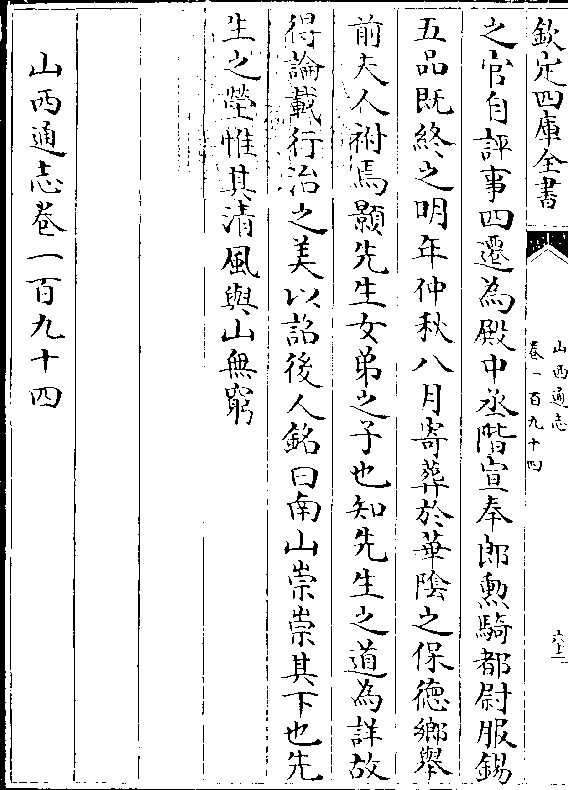 欽定四庫全書
山西通志
卷一百九十四
六十二
之官自評事四遷為殿中丞階宣奉郎勲騎都尉服錫
五品既終之明年仲秋八月寄葬於華陰之保德鄉舉
前夫人祔焉顥先生女弟之子也知先生之道為詳故
得論載行治之美以詔後人銘曰南山崇崇其下也先
生之塋惟其清風與山無窮
山西通志卷一百九十四